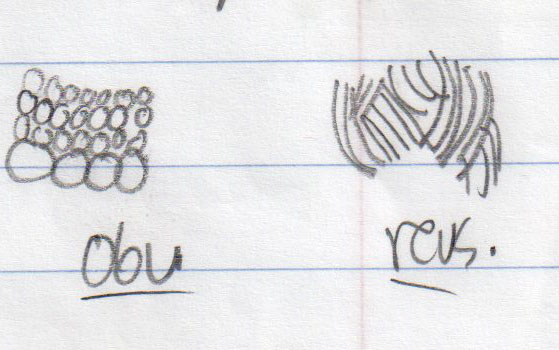 obv.
revs.